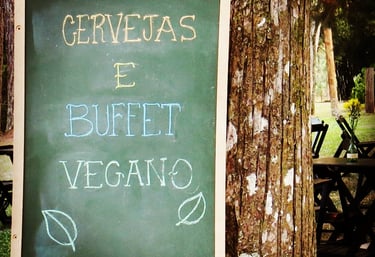 CERVEJAS
E
BUFFET
VEGANO